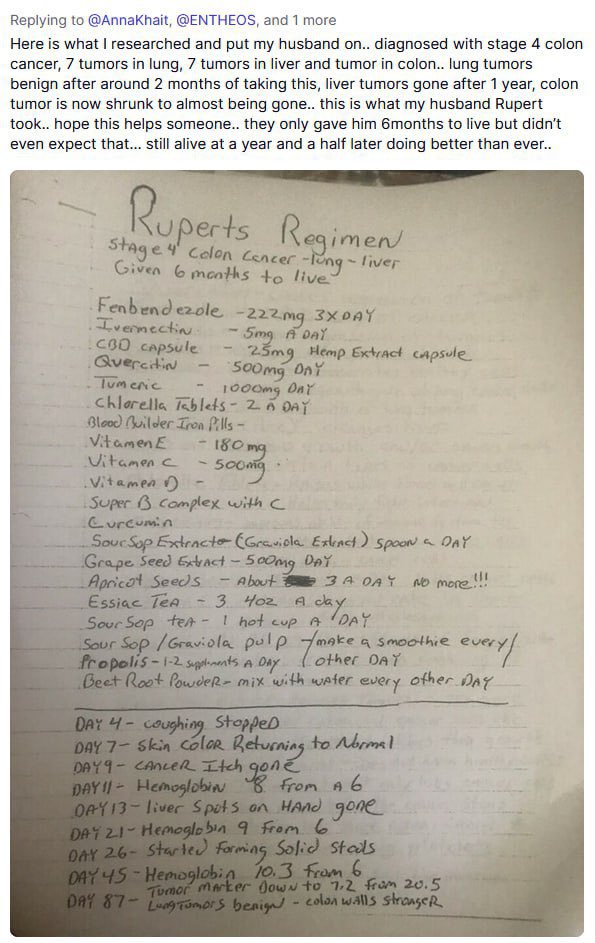 Replying to @AnnaKhait, @ENTHEOS, and 1 more
Here is what I researched and put my husband on.. diagnosed with stage 4 colon
cancer, 7 tumors in lung, 7 tumors in liver and tumor in colon.. lung tumors
benign after around 2 months of taking this, liver tumors gone after 1 year, colon
tumor is now shrunk to almost being gone.. this is what my husband Rupert
took.. hope this helps someone.. they only gave him 6months to live but didn't
even expect that... still alive at a year and a half later doing better than ever..
Ruperts Regimen
Stage 4 Colon Cancer - lung - liver
Given 6 months to live
Fenbendezole - 222mg 3X DAY
Ivermectin - 5mg A DAY
CBD CAPSULE - 25mg Hemp Extract CAPSULE
Quercitin - 500mg DAY
Tumeric - 1000mg DAY
Chlorella Tablets - 2 A DAY
Blood Builder Iron Pills -
Vitamen E - 180mg
Vitamen C - 500mg
Vitamen D -
Super B complex with C
Curcumin
Sour Sop Extract (Graviola Extract) spoon a DAY
Grape Seed Extract - 500mg DAY
Apricot Seeds - About 3 A DAY NO more!!!
Essiac TeA - 3 4oz A day
Sour Sop teA - 1 hot cup A DAY
Sour Sop / Graviola pulp - make a smoothie every
Propolis - 1-2 suppliments A DAY other DAY
Beet Root Powder - mix with water every other DAY
DAY 4 - coughing Stopped
DAY 7 - Skin Color Returning to Normal
DAY 9 - CANCER Itch gone
DAY 11 - Hemoglobin 8 from A 6
DAY 13 - liver Spots on HAND gone
DAY 21 - Hemoglobin 9 from 6
DAY 26 - Started forming Solid Stools
DAY 45 - Hemoglobin 10.3 from 6
Tumor marker Down to 7.2 from 20.5
DAY 87 - Lung Tumors benign - colon walls stronger